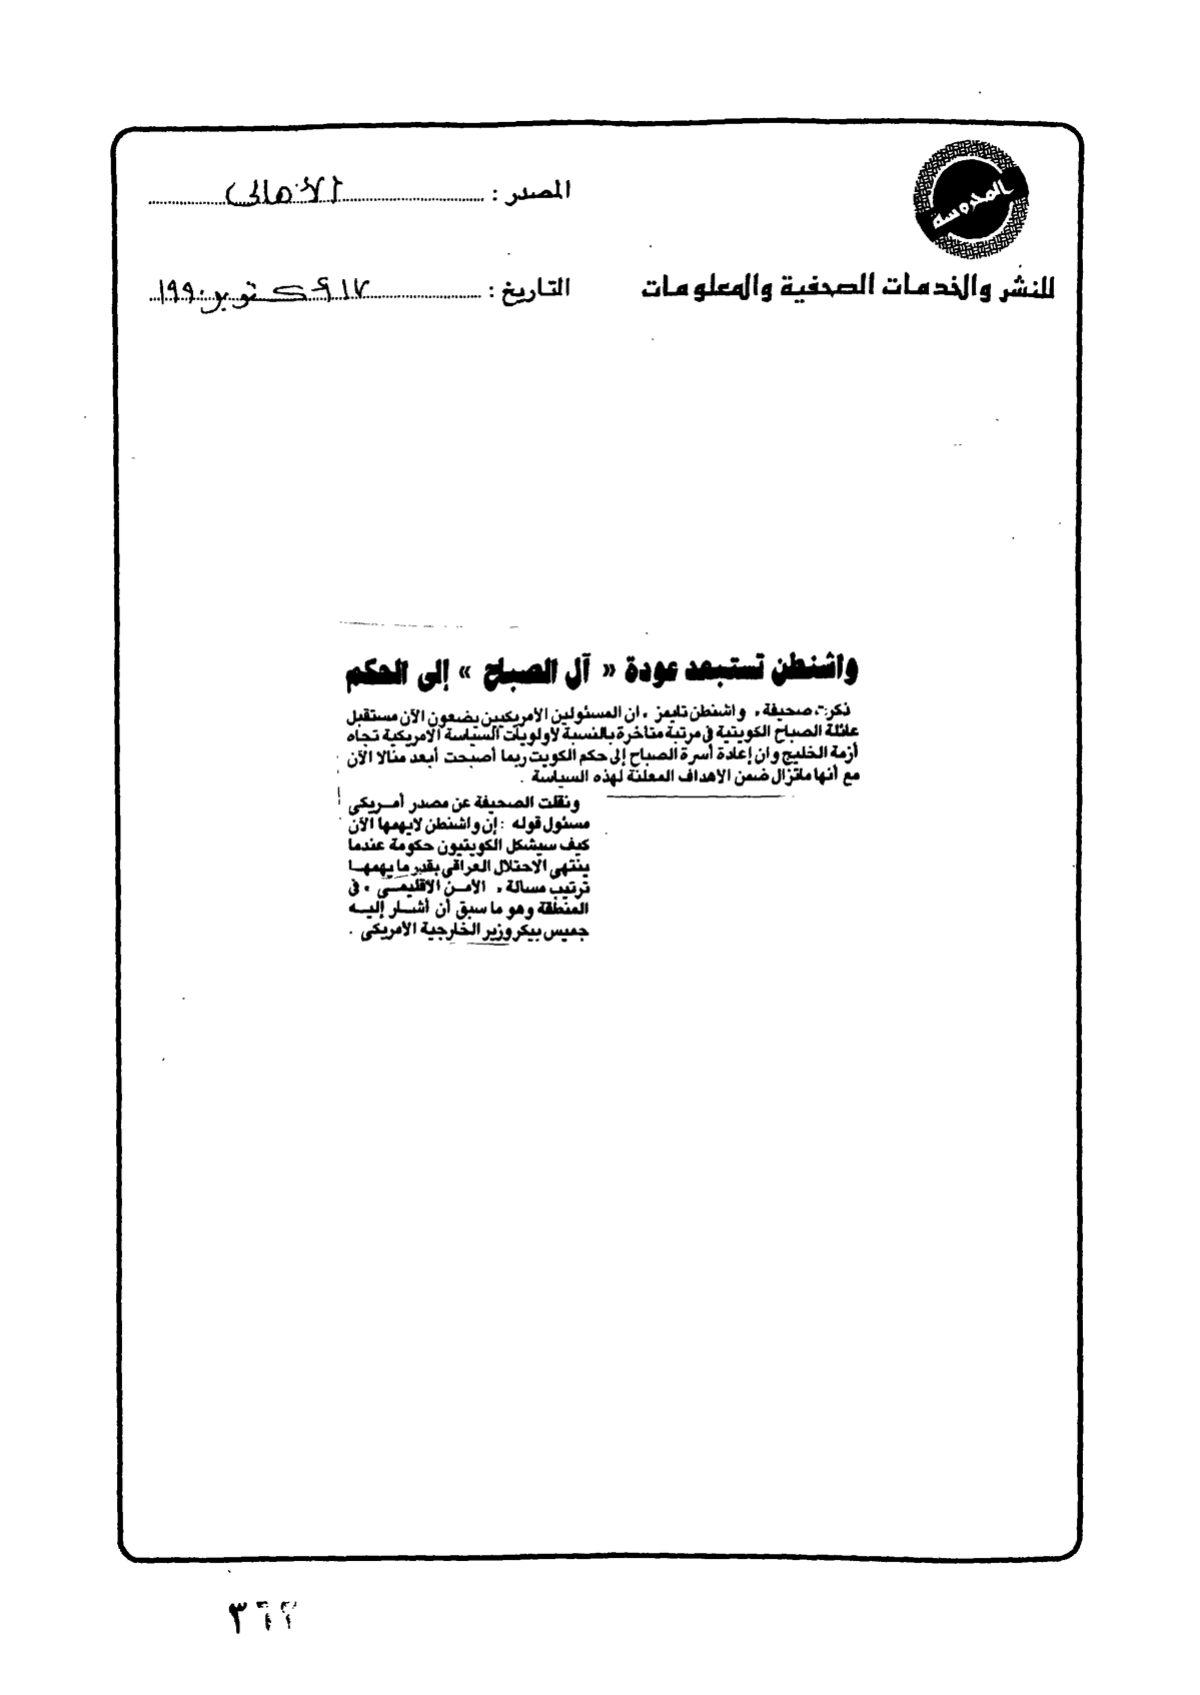 المحروسة
المصدر : الأهالى
للنشر والخدمات الصحفية والمعلومات
التاريخ : ١٧ أكتوبر ١٩٩٠
واشنطن تستبعد عودة « آل الصباح » إلى الحكم
ذكرت صحيفة « واشنطن تايمز » ان المسئولين الأمريكيين يضعون الآن مستقبل
عائلة الصباح الكويتية فى مرتبة متاخرة بالنسبة لأولويات السياسة الامريكية تجاه
أزمة الخليج وان إعادة أسرة الصباح إلى حكم الكويت ربما أصبحت أبعد منالا الآن
مع أنها ماتزال ضمن الاهداف المعلنة لهذه السياسة .
ونقلت الصحيفة عن مصدر أمريكى
مسئول قوله : إن واشنطن لايهمها الآن
كيف سيشكل الكويتيون حكومة عندما
ينتهى الاحتلال العراقى بقدر ما يهمها
ترتيب مسالة « الأمن الاقليمى » فى
المنطقة وهو ما سبق أن أشار إليه
جميس بيكر وزير الخارجية الأمريكى .